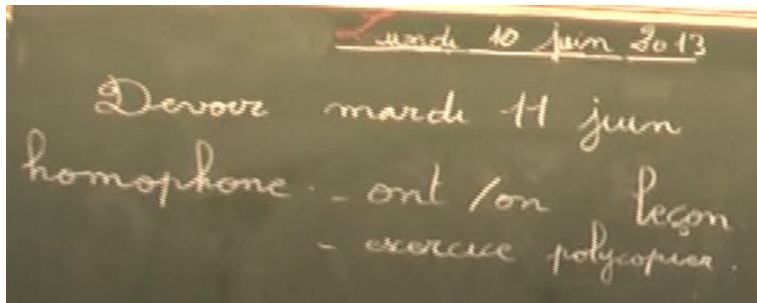 Lundi 10 juin 2013
Devoir mardi 11 juin
homophone - ont / on leçon
- exercice polycopier.